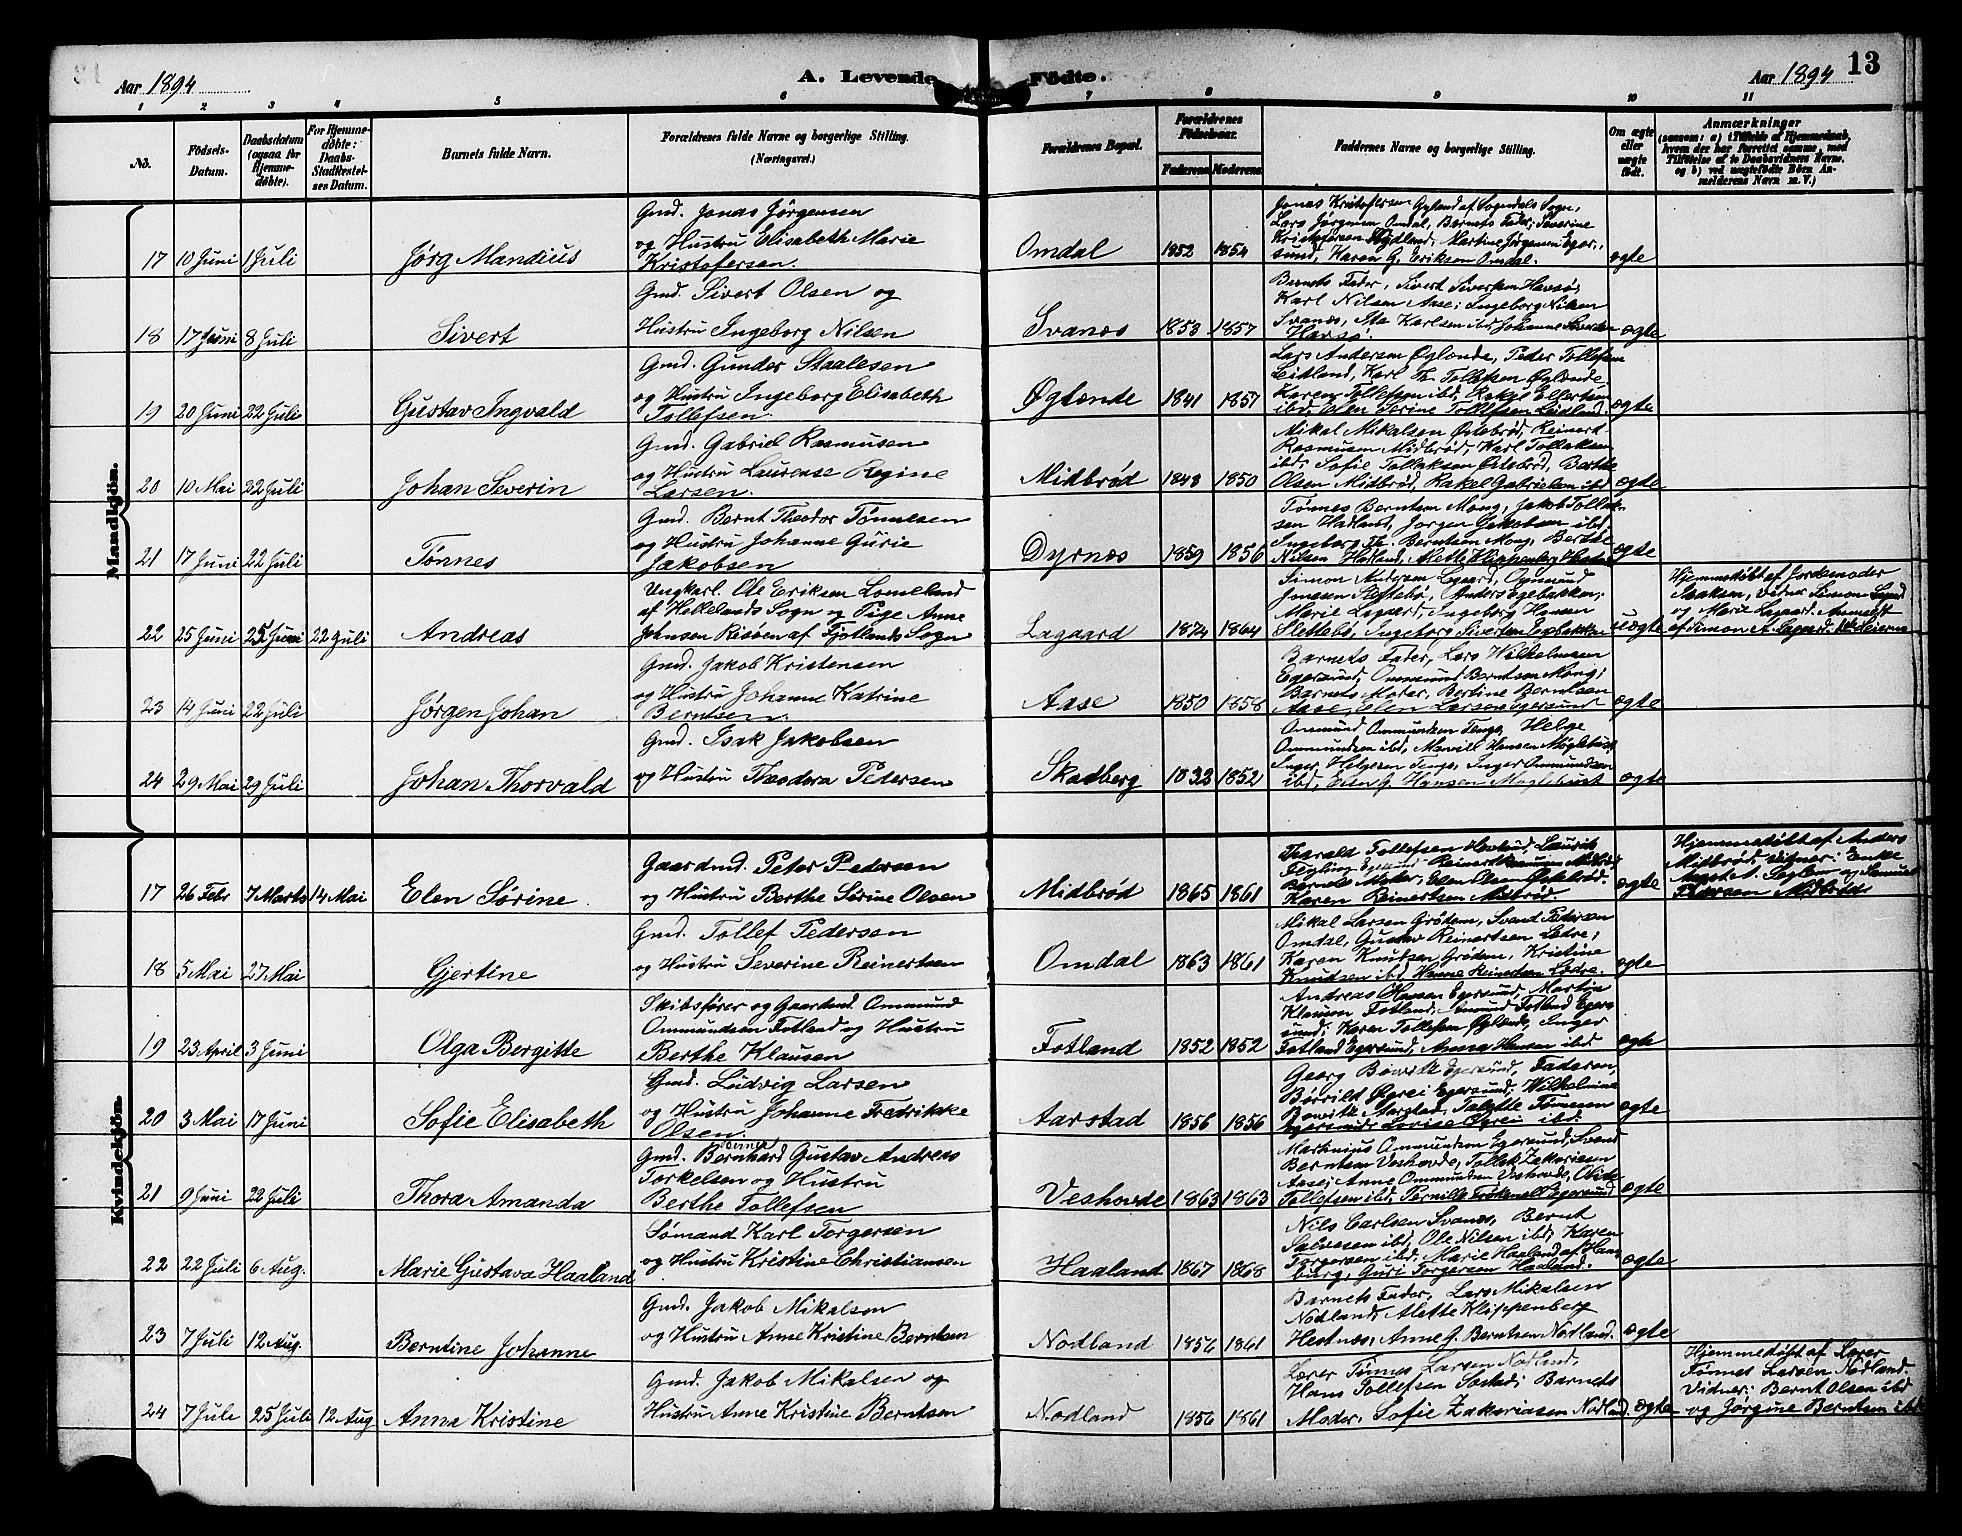 Aar 1894
A. Levende Födte.
Aar 1894 13
1 2 3 4 5 6 7 8 9 10 11
No.
Födsels-
Datum.
Daabsdatum
(ogsaa for
Hjemme-
döbte).
For Hjemme-
döbte:
Daabs-
Stadfæstel-
ses Datum.
Barnets fulde Navn.
Forældrenes fulde Navne og borgerlige Stilling.
(Næringsvei.)
Forældrenes Bopæl.
Forældrenes
Födselsaar.
Faderens Moderens
Faddernes Navne og borgerlige Stilling.
Om ægte
eller
uægte
födt.
Anmærkninger
(saasom: a) i Tilfælde af Hjemmedaab,
hvem der har forrettet samme, med
Tilföielse af to Daabsvidners Navne,
og b) ved uægtefödte Börn An-
melderens Navn m. V.)
Mandkjön.
17 10 Juni 1 Juli
Jørg Mandius
Gmd. Jonas Jørgensen
og Hustru Elisabeth Marie
Kristofersen.
Omdal 1852 1854
Jonas Kristofersen Gyland af Sogndals Sogn,
Lars Jørgensen Omdal, Barnets Fader; Severine
Kristofersen Nydland, Martine Jørgensen Eger-
sund, Karen G. Eriksen Omdal.
ægte
18 17 Juni 8 Juli
Sivert
Gmd. Sivert Olsen og
Hustru Ingeborg Nilsen
Svanæs 1853 1857
Barnets Fader, Sivert Sivertsen Havsø,
Karl Nilsen Aase; Ingeborg Nilsen
Svanæs, Karlsen ibd, Johanne Sivertsen
Havsø.
ægte
19 20 Juni 22 Juli
Gustav Ingvald
Gmd. Gunder Staalesen
og Hustru Ingeborg Elisabeth
Tollefsen.
Øglænde 1841 1857
Lars Andersen Øglænde, Peder Tollefsen
Leidland, Karl Th. Tollefsen Øglænde,
Karen Tollefsen ibd, Rakel Ellertsen
ibd, Elen Serine Tollefsen Leidland.
ægte
20 10 Mai 22 Juli
Johan Severin
Gmd. Gabriel Rasmusen
og Hustru Laurense Regine
Larsen.
Midbrød 1848 1850
Mikal Mikalsen Østebrød, Reinert
Rasmusen Midbrød, Karl Tollaksen
ibd, Sofie Tollaksen Østebrød, Berthe
Olsen Midbrød, Rakel Gabrielsen ibd
ægte
21 17 Juni 22 Juli
Tønnes
Gmd. Bernt Theodor Tønnesen
og Hustru Johanne Gurie
Jakobsen
Dyrnæs 1859 1856
Tønnes Berntsen Mong, Jakob Tollak-
sen Hadland, Jørgen Jakobsen ibd,
Ingeborg Th. Berntsen Mong, Berthe
Nilsen Hadland, Alette Klippenberg
ægte
22 25 Juni 25 Juni 22 Juli
Andreas
Ungkarl. Ole Eriksen Lomeland
af Hellelands Sogn og Pige Anne
Johnsen Risøen af Fjotlands Sogn
Lagaard 1874 1864
Simon Andersen Lagaard, Ommund
Jonassen Slettebø, Anders Egebakken;
Marie Lagaard, Ingeborg Hansen
Slettebø, Ingeborg Sivertsen Egebakken
uægte
Hjemmedøbt af Jordemoder
Isaksen, Vidner Simon Lagaard
og Marie Lagaard. Anmeldt
af Simon A. Lagaard.
23 14 Juni 22 Juli
Jørgen Johan
Gmd. Jakob Kristensen
og Hustru Johanne Katrine
Berntsen.
Aase 1850 1858
Barnets Fader, Lars Wilhelmsen
Egersund, Ommund Berntsen Mong;
Barnets Moder, Bertine Berntsen
Aase, Elen Larsen Egersund
ægte
24 29 Mai 29 Juli
Johan Thorvald
Gmd. Isak Jakobsen
og Hustru Theodora Pedersen
Skadberg 1832 1852
Ommund Ommundsen Tengs, Helge
Ommundsen ibd, Hansen Møglebust
Inger Helgesen Tengs, Inger Ommundsen
ibd, Elen G. Hansen Møglebust
ægte
Kvindekjön.
17 26 Febr 7 Marts 14 Mai
Elen Sørine
Gaardmd. Peter Pedersen
og Hustru Berthe Sørine Olsen
Midbrød 1865 1861
Tharald Tollefsen Laurits
Barnets Moder, Elen Olsen Østebrød.
Karen Reinertsen Midbrød.
ægte
Hjemmedøbt af Anders
Midbrød, Vidner: Enke
og Samuel
Pedersen Midbrød
18 5 Mai 27 Mai
Gjertine
Gmd. Tollef Pedersen
og Hustru Severine Reinertsen
Omdal 1863 1861
Mikal Larsen Grødem, Svend Pedersen
Omdal, Gustav Reinertsen Lædre;
Karen Knutsen Grødem, Kristine
Knudsen ibd, Hanne Reinertsen Lædre.
ægte
19 23 April 3 Juni
Olga Bergitte
Skibsfører og Gaardmd. Ommund
Ommundsen Fotland og Hustru
Berthe Klausen
Fotland 1852 1852
Andreas Hansen Egersund, Martin
Klausen Fotland, Fotland Eger-
sund; Karen Tollefsen Øglænde, Inger
Fotland Egersund, Anna Hansen ibd
ægte
20 3 Mai 17 Juni
Sofie Elisabeth
Gmd. Ludvig Larsen
og Hustru Johanne Fredrikke
Olsen.
Aarstad 1856 1856
Georg Bowitz Egersund, Faderen,
Egersund; Wilhelmine
Bowitz Aarstad, Tønnesen
Egersund, ibd.
ægte
21 9 Juni 22 Juli
Thora Amanda
Gmd. Bernhard Gustav Andreas
Torkelsen og Hustru
Berthe Tollefsen
Veshovde 1863 1863
Martinius Ommundsen Egersund, Svend
Berntsen Veshovde, Tollak Zakariasen
Aase; Anne Ommundsen Veshovde,
Tollefsen ibd, Pernille Egersund
ægte
22 22 Juli 6 Aug.
Marie Gustava Haaland
Sømand Karl Torgersen
og Hustru Kristine Christiansen
Haaland 1867 1868
Nils Carlsen Svanæs, Bernt
Salvesen ibd, Ole Nilsen ibd; Karen
Torgersen ibd, Marie Haaland af Ham-
burg, Guri Torgersen Haaland.
ægte
23 7 Juli 12 Aug.
Berntine Johanne
Gmd. Jakob Mikalsen
og Hustru Anne Kristine Berntsen
Nodland 1856 1861
Barnets Fader, Lars Mikalsen
Nodland, Alette Klippenberg
Hestnæs, Anne G. Berntsen Nodland.
ægte
24 7 Juli 25 Juli 12 Aug
Anna Kristine
Gmd. Jakob Mikalsen og
Hustru Anne Kristine Berntsen
Nodland 1856 1861
Lærer Tønnes Larsen Nodland,
Hans Tollefsen Barnets
Moder, Sofie Zakariasen Nodland.
ægte
Hjemmedøbt af Lærer
Tønnes Larsen Nodland.
Vidner: Bernt Olsen ibd
og Jørgine Berntsen ibd